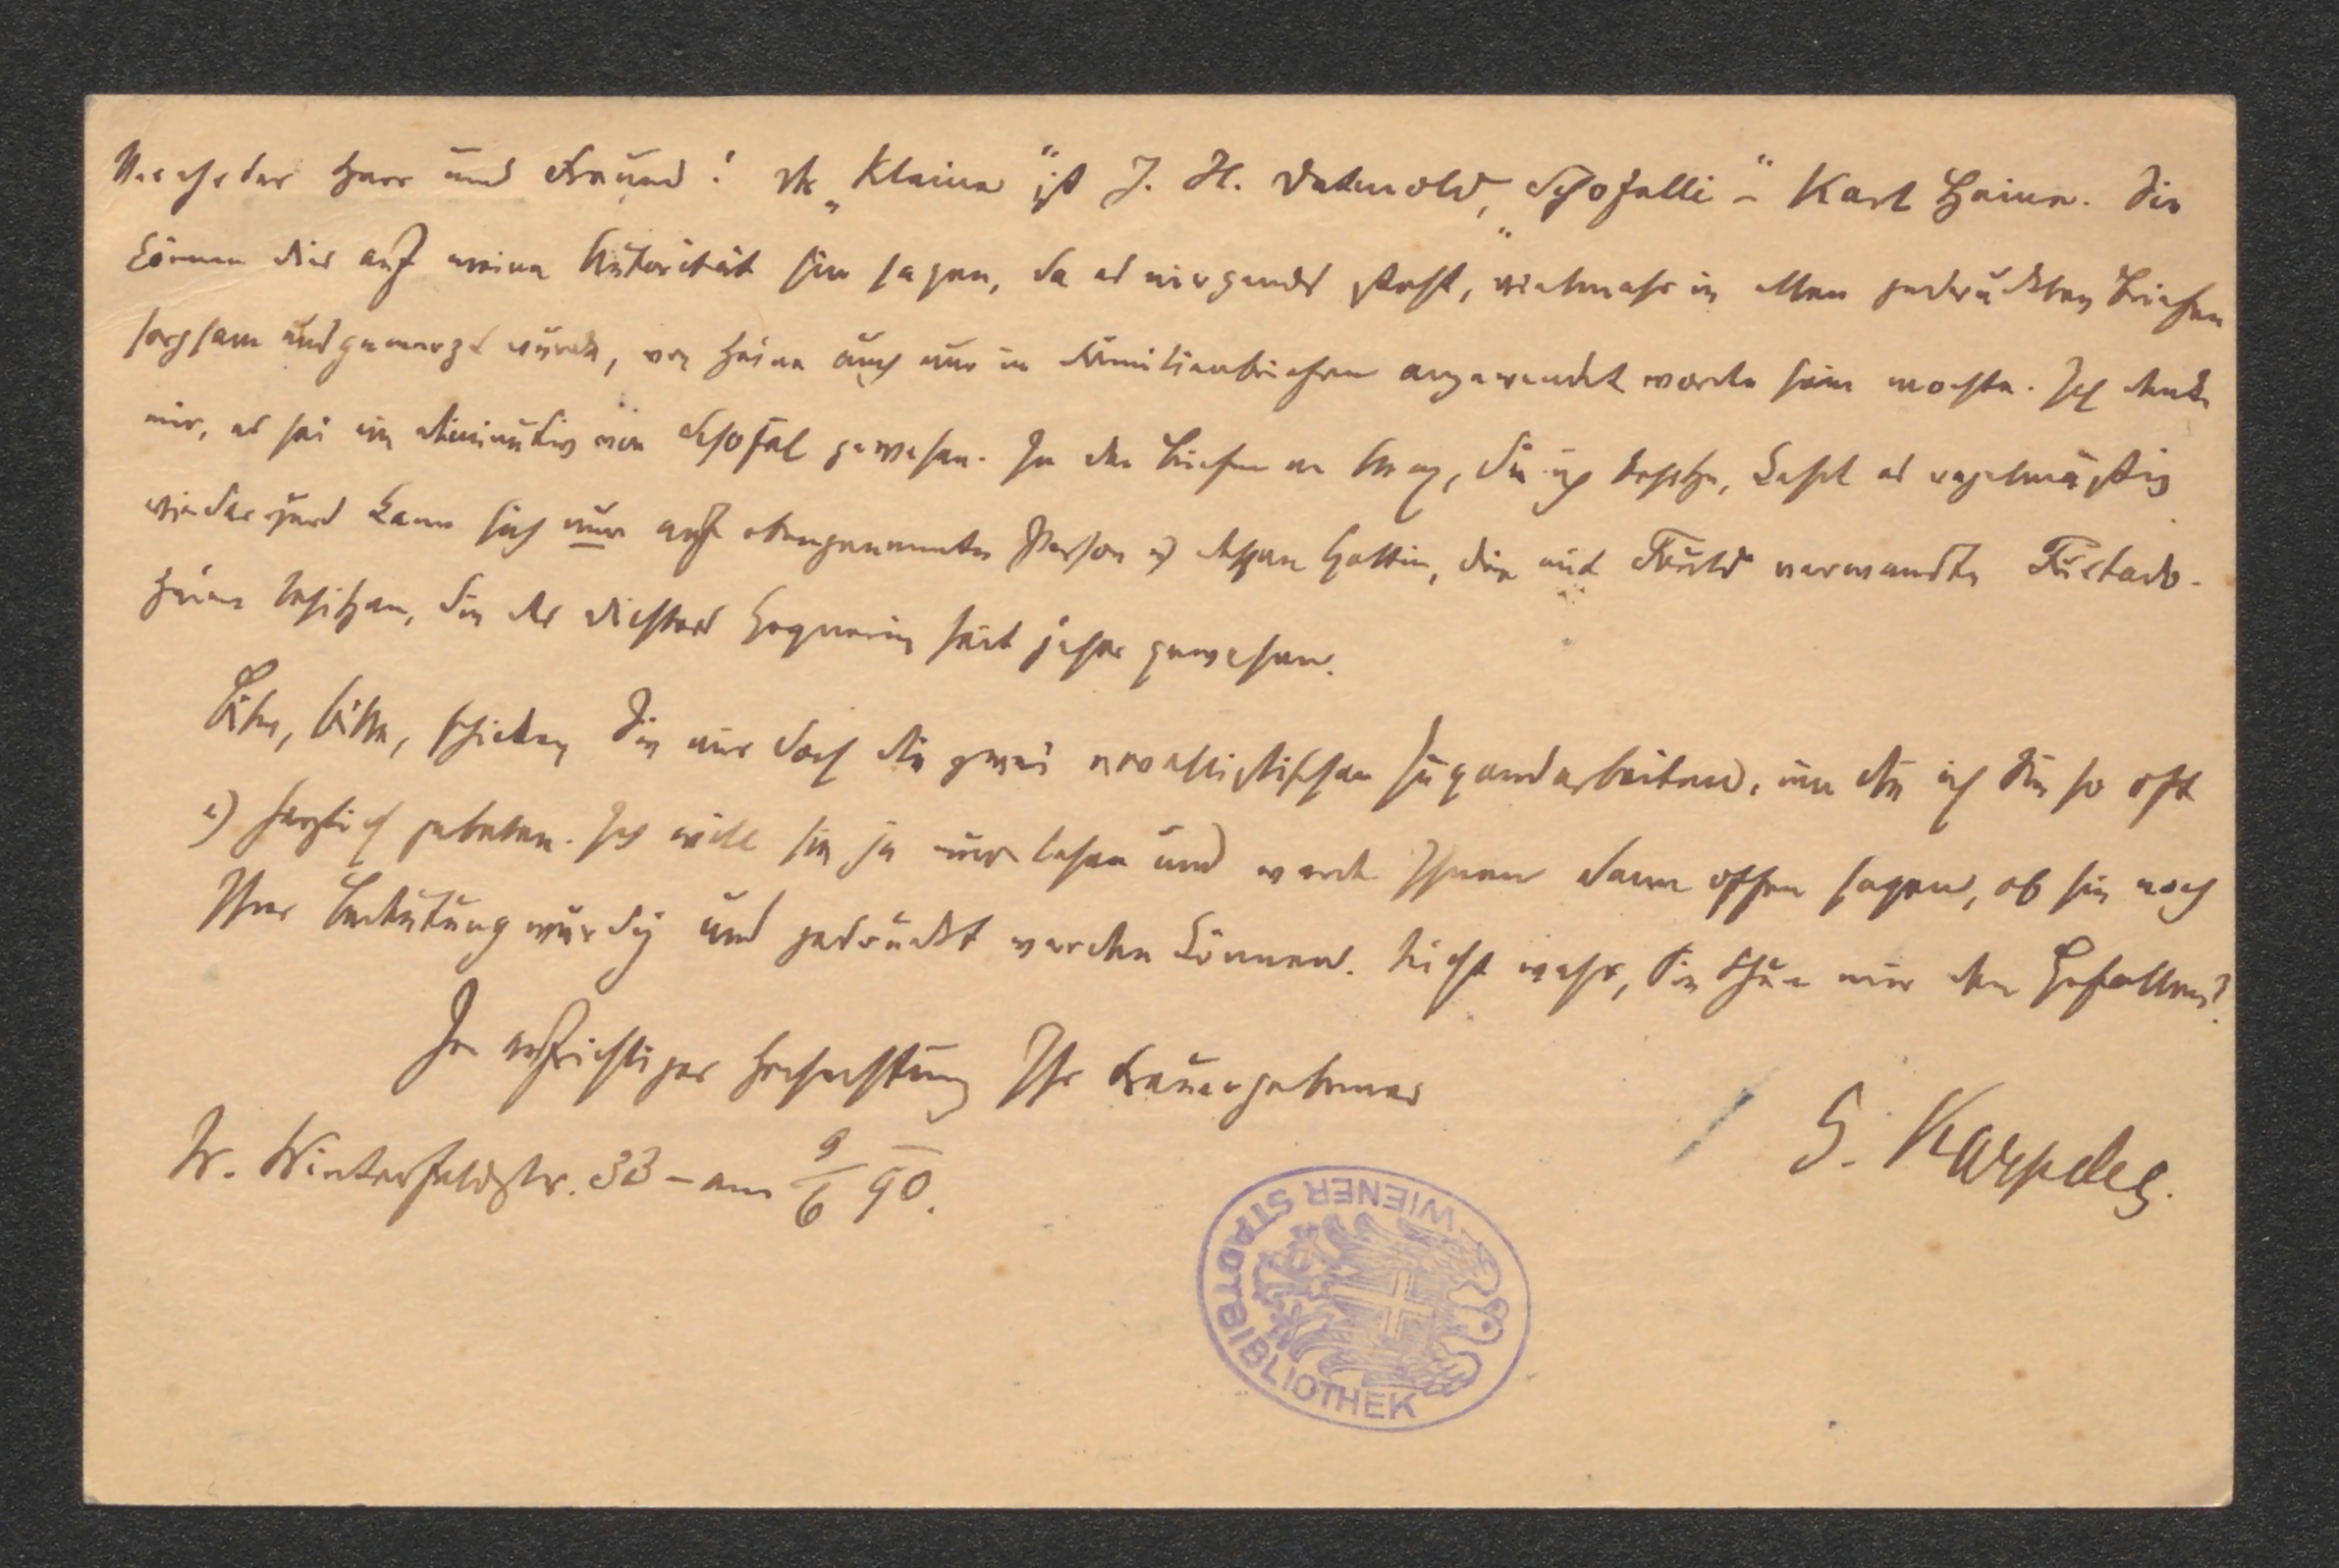 Verehrter Herr und Freund! Der „Kleine“ ist J. H. Detmold, „Schofelli“ – Karl Heine. Sie
können dies auf meine Autorität hin sagen, da es nirgends steht, vielmehr in allen gedruckten Briefen
sorgsam ausgemerzt wurde, von Heine auch nur in Familienbriefen angewendet worden sein mochte. Ich denke
mir, es sei ein Diminutiv von Schofel gewesen. In den Briefen an Max, die ich besitze, kehrt es regelmäßig
wieder und kann sich nur auf obengenannte Person u) dessen Gattin, die mit Fould verwandte Furtado-
Heine beziehen, die des Dichters Gegnerin seit jeher gewesen.
Bitte, bitte, schicken Sie mir doch die zwei novellistischen Jugendarbeiten, um die ich Sie so oft
u) herzlich gebeten. Ich will sie ja nur lesen und werde Ihnen dann offen sagen, ob sie noch
Ihrer Bedeutung würdig und gedruckt werden können. Nicht wahr, Sie thun mir den Gefallen?
In aufrichtiger Hochachtung Ihr treuergebener
G. Karpeles.
W. Winterfeldstr. 33 – am 9/6 90.
WIENER STADTBIBLIOTHEK